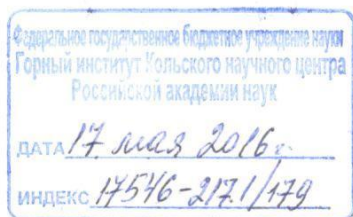 Федеральное государственное бюджетное учреждение науки
Горный институт Кольского научного центра
Российской академии наук
ДАТА 17 мая 2016 г.
ИНДЕКС 17546-217.1/179